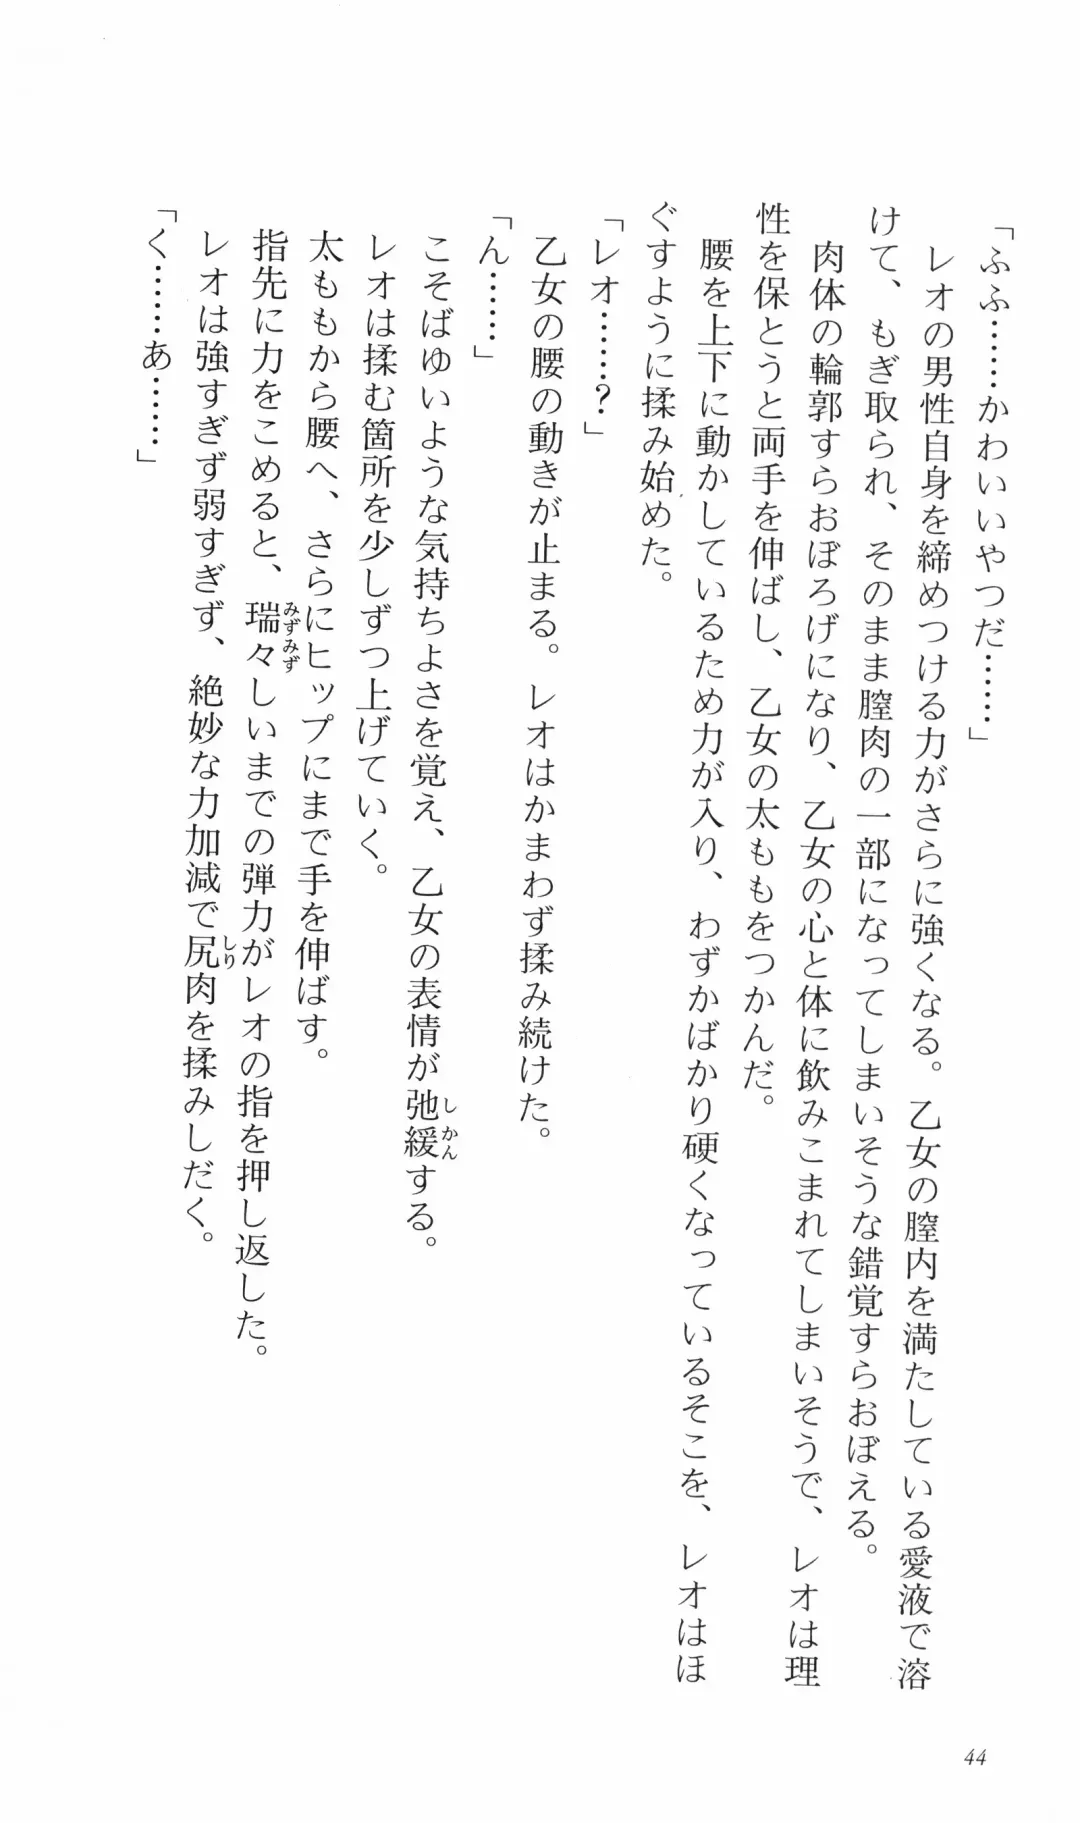 「ふふ……かわいいやつだ……」
レオの男性自身を締めつける力がさらに強くなる。乙女の膣内を満たしている愛液で溶
けて、もぎ取られ、そのまま膣肉の一部になってしまいそうな錯覚すらおぼえる。
肉体の輪郭すらおぼろげになり、乙女の心と体に飲みこまれてしまいそうで、レオは理
性を保とうと両手を伸ばし、乙女の太ももをつかんだ。
腰を上下に動かしているため力が入り、わずかばかり硬くなっているそこを、レオはほ
ぐすように揉み始めた。
「レオ……？」
乙女の腰の動きが止まる。レオはかまわず揉み続けた。
「ん……」
こそばゆいような気持ちよさを覚え、乙女の表情が弛緩する。
しかん
レオは揉む箇所を少しずつ上げていく。
太ももから腰へ、さらにヒップにまで手を伸ばす。
指先に力をこめると、瑞々しいまでの弾力がレオの指を押し返した。
みずみず
レオは強すぎず弱すぎず、絶妙な力加減で尻肉を揉みしだく。
しり
「く……あ……」
44